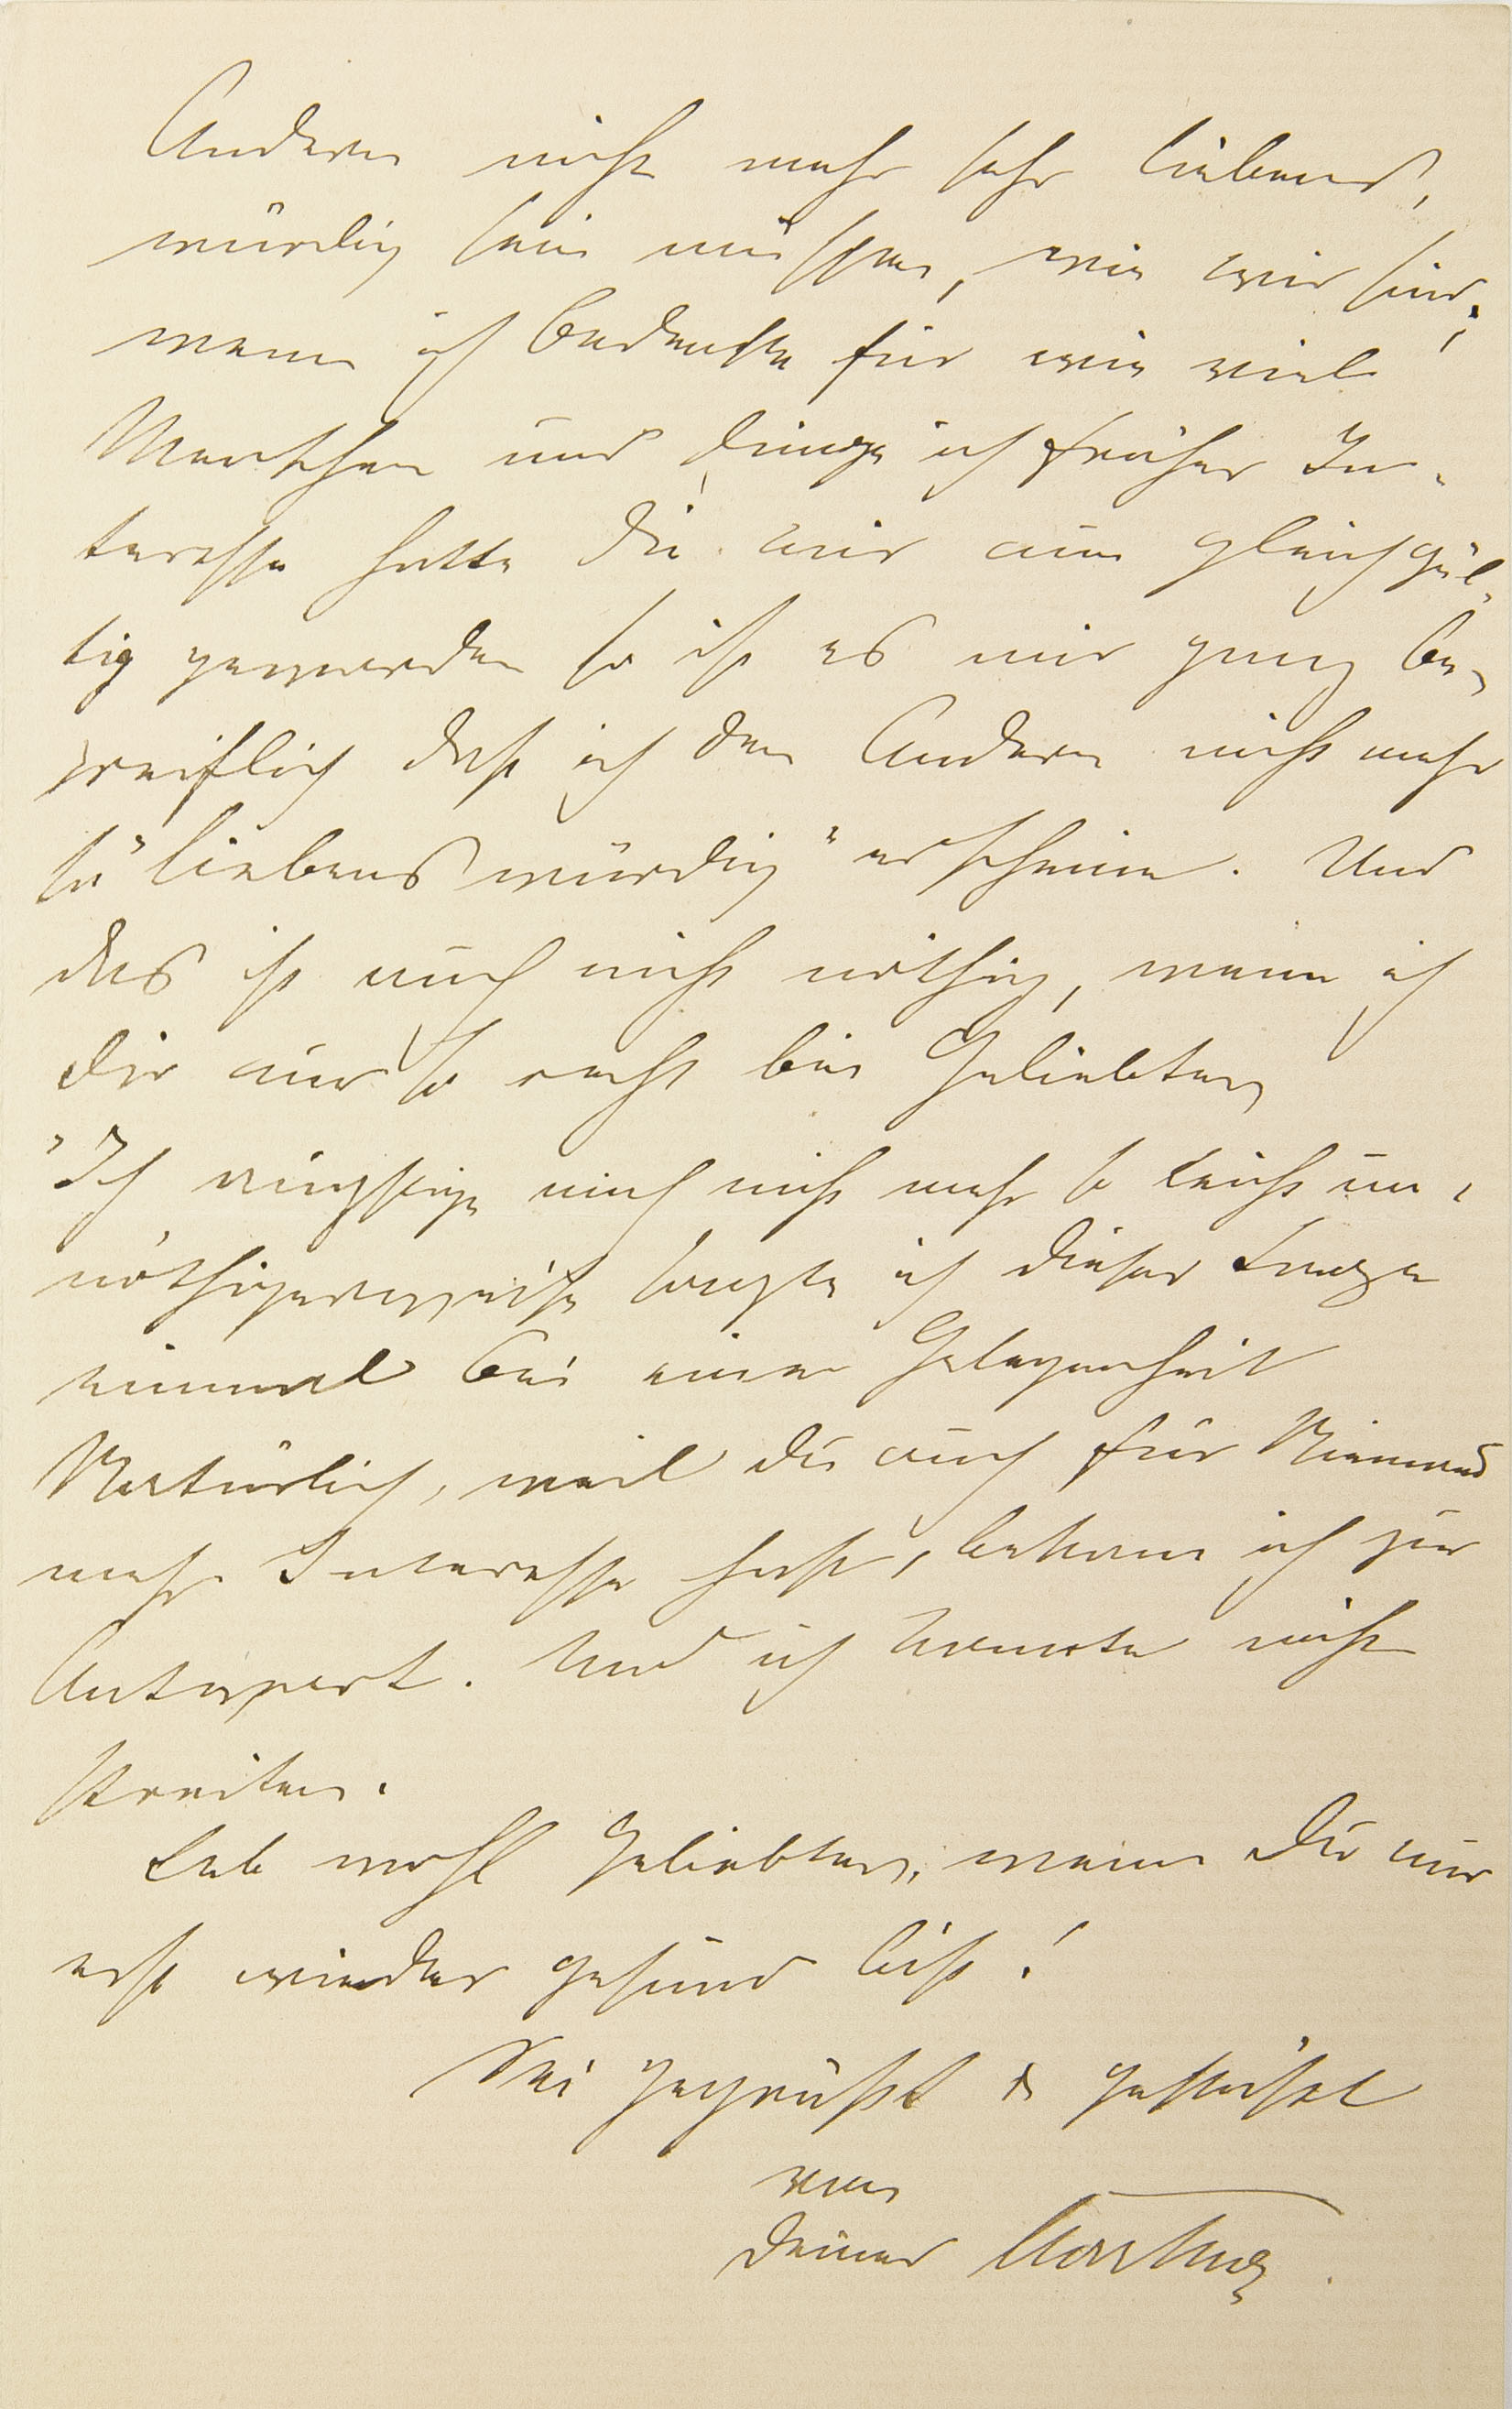 Andern nicht mehr sehr liebens-
würdig sein müssen, wie wir sind;
wenn ich bedenke für wie viel
Menschen und Dinge ich früher In-
teresse hatte die mir nun gleichgül-
tig geworden so ist es mir ganz be-
greiflich daß ich den Andern nicht mehr
so "liebenswürdig" erscheine. Und
das ist auch nicht nöthig, wenn ich
dir nur so recht bin Geliebter
"Ich ängstige mich nicht mehr so leicht un-
nöthigerweise sagte ich dieser Tage
einmal bei einer Gelegenheit
Natürlich, weil du auch für Niemand
mehr Interesse hast, bekam ich zur
Antwort. Und ich konnte nicht
streiten.
Leb wohl Geliebter, wenn Du nur
erst wieder gesund bist!
Sei gegrüßt & geküsst
von
Deiner